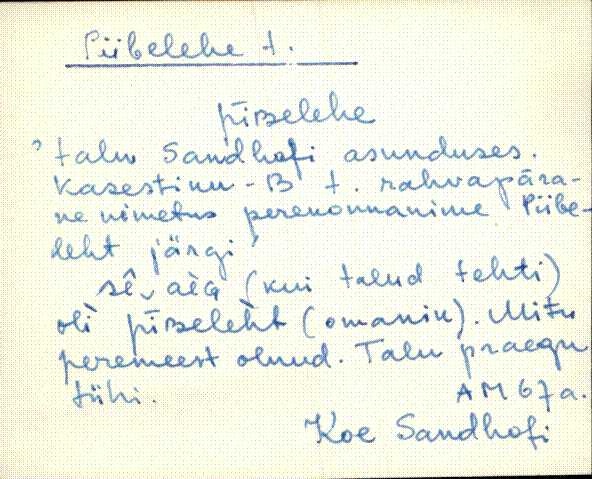 Piibelehe t.
pīʙ̥elehe
' talu Sandhofi asunduses.
Kasestinu - B t. rahvapära-
ne nimetus perekonnanime Piibe-
leht järgi '
sê͜ aèG (kui talud tehti)
olì pīʙ̥elèht (omanik). Mitu
peremeest olnud. Talu praegu
tühi.
AM 67 a.
Koe Sandhofi